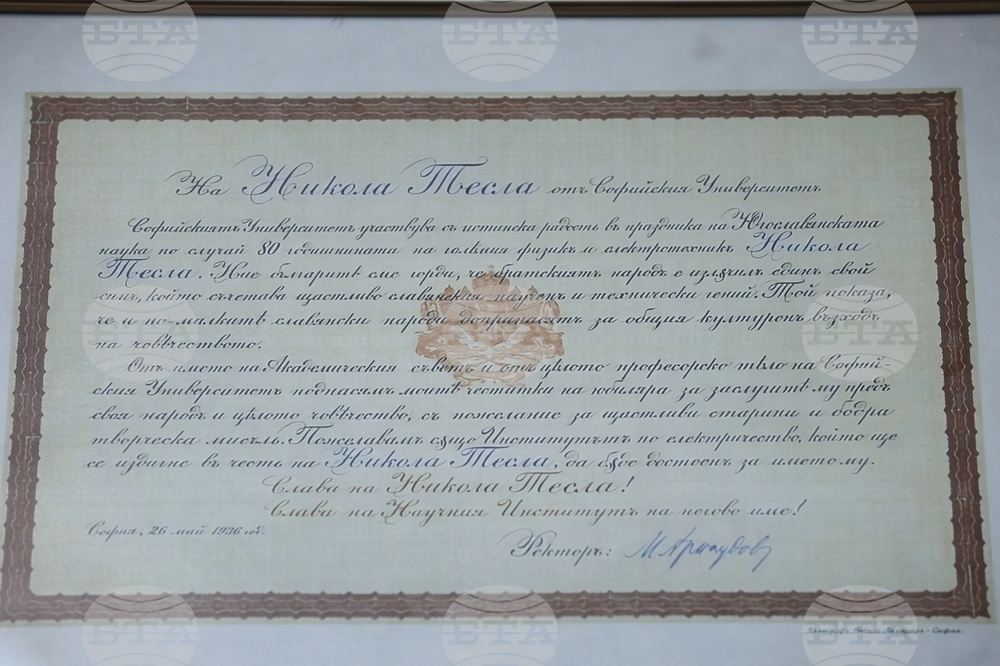 БТА БТА БТА
На Никола Тесла отъ Софийския Университетъ
Софийскиятъ Университетъ участвува съ истинска радость въ праздника на Югославянската
наука по случай 80 годишнината на голѣмия физикъ и електротехникъ Никола
Тесла. Ние българитѣ сме горди, че братскиятъ народъ е излѫчилъ единъ свой
синъ, който съчетава щастливо славянския наученъ и технически гений. Той показа,
че и по-малкитѣ славянски народи допринасятъ за общия културенъ възходъ
на човѣчеството.
Отъ името на Академическия съветъ и отъ цѣлото професорско тѣло на Софий-
ския Университетъ поднасямъ моитѣ честитки на юбиляра за заслугитѣ му предъ
своя народъ и цѣлото човѣчество, съ пожелание за щастливи старини и бодра
творческа мисъль. Пожелавамъ сѫщо Институтътъ по електричество, който ще
се издигне въ честь на Никола Тесла, да бѫде достоенъ за името му.
Слава на Никола Тесла!
Слава на Научния Институтъ на негово име!
София, 26 май 1936 год.
Ректоръ: М. Арнаудовъ
София.
БТА БТА БТА